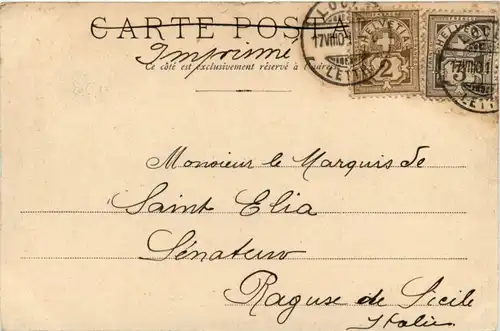 CARTE POSTA
Imprimé
Ce côté est exclusivement réservé à l'adresse
HELVETIA
2
3
17 VIII 01
LETTR
Monsieur le Marquis de
Saint Elia
Sénateur
Raguse de Sicile
Italie